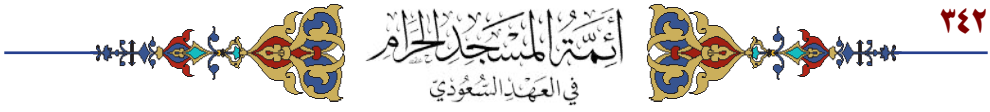 ٣٤٢
أَئِمَّةُ المَسْجِدِ الحَرَامِ
فِي العَهْدِ السُّعُودِيّ